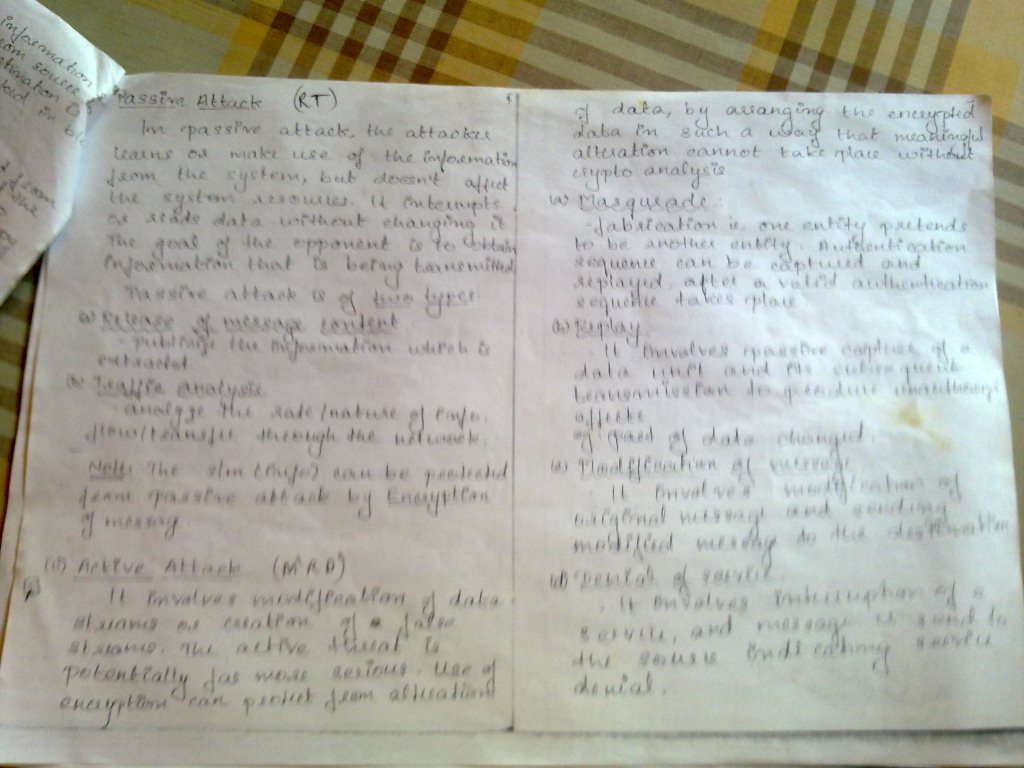 information
from source
Passive Attack (RT)
In passive attack, the attacker
learns or make use of the information
from the system, but doesn't affect
the system resources. It interrupts
or reads data without changing it
The goal of the opponent is to obtain
information that is being transmitted
Passive attack is of two types
(a) Release of message content
- publicize the information which is
extracted
(b) Traffic analysis
- analyze the rate/nature of info.
flow/transfer through the network.
Note: The s/m (info) can be protected
from passive attack by Encryption
of messg.
Active Attack (M²RD)
It involves modification of data
streams or creation of a false
streams. The active threat is
potentially far more serious. Use of
encryption can protect from alteration
of data, by arranging the encrypted
data in such a way that meaningful
alteration cannot take place without
crypto analysis
(a) Masquerade:
- fabrication ie, one entity pretends
to be another entity. Authentication
sequence can be captured and
replayed after a valid authentication
sequence takes place
(b) Replay
- It involves passive capture of a
data unit and its subsequent
transmission to produce
effects
part of data changed.
(c) Modification of message
- It involves modification of
original message and sending
modified message to the destination
(d) Denial of service
- It involves interruption of a
service, and message is send to
the source indicating service
denial.